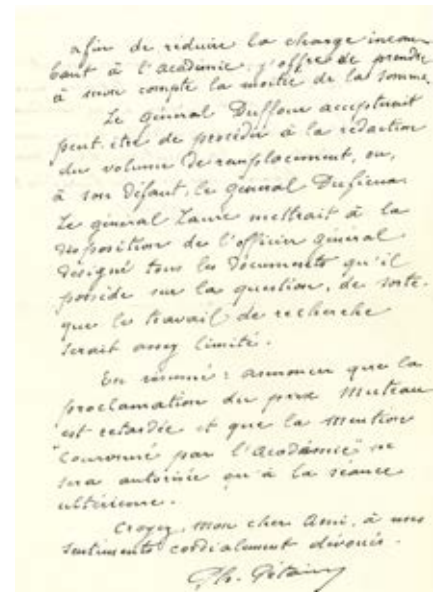 afin de réduire la charge incom-
bant à l'académie, j'offre de prendre
à mon compte la moitié de la somme.
Le général Duffour accepterait
peut-être de procéder à la rédaction
du volume de remplacement, ou,
à son défaut, le général Dufieux.
Le général Laure mettrait à la
disposition de l'officier général
désigné tous les documents qu'il
possède sur la question, de sorte
que le travail de recherche
serait assez limité.
En résumé : annoncer que la
proclamation du prix Muteau
est retardée et que la mention
"couronné par l'Académie" ne
sera autorisée qu'à la séance
ultérieure.
Croyez, mon cher Ami, à mes
sentiments cordialement dévoués.
Ph. Pétain